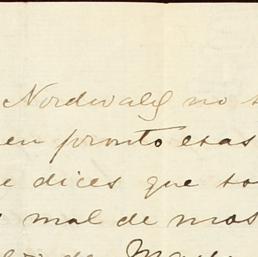 Nordwald no
en pronto esas
e dices que
mal de mos
de